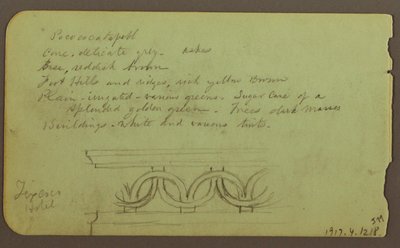 Popocatapetl
Cone, delicate grey - ashes
Base, reddish brown
Foot Hills and ridges, rich yellow Brown
Plain - irrigated - various greens. Sugar Cane of a
splendid golden green - Trees dark masses
Buildings - white and various tints.
Hotel
1917.4.1218